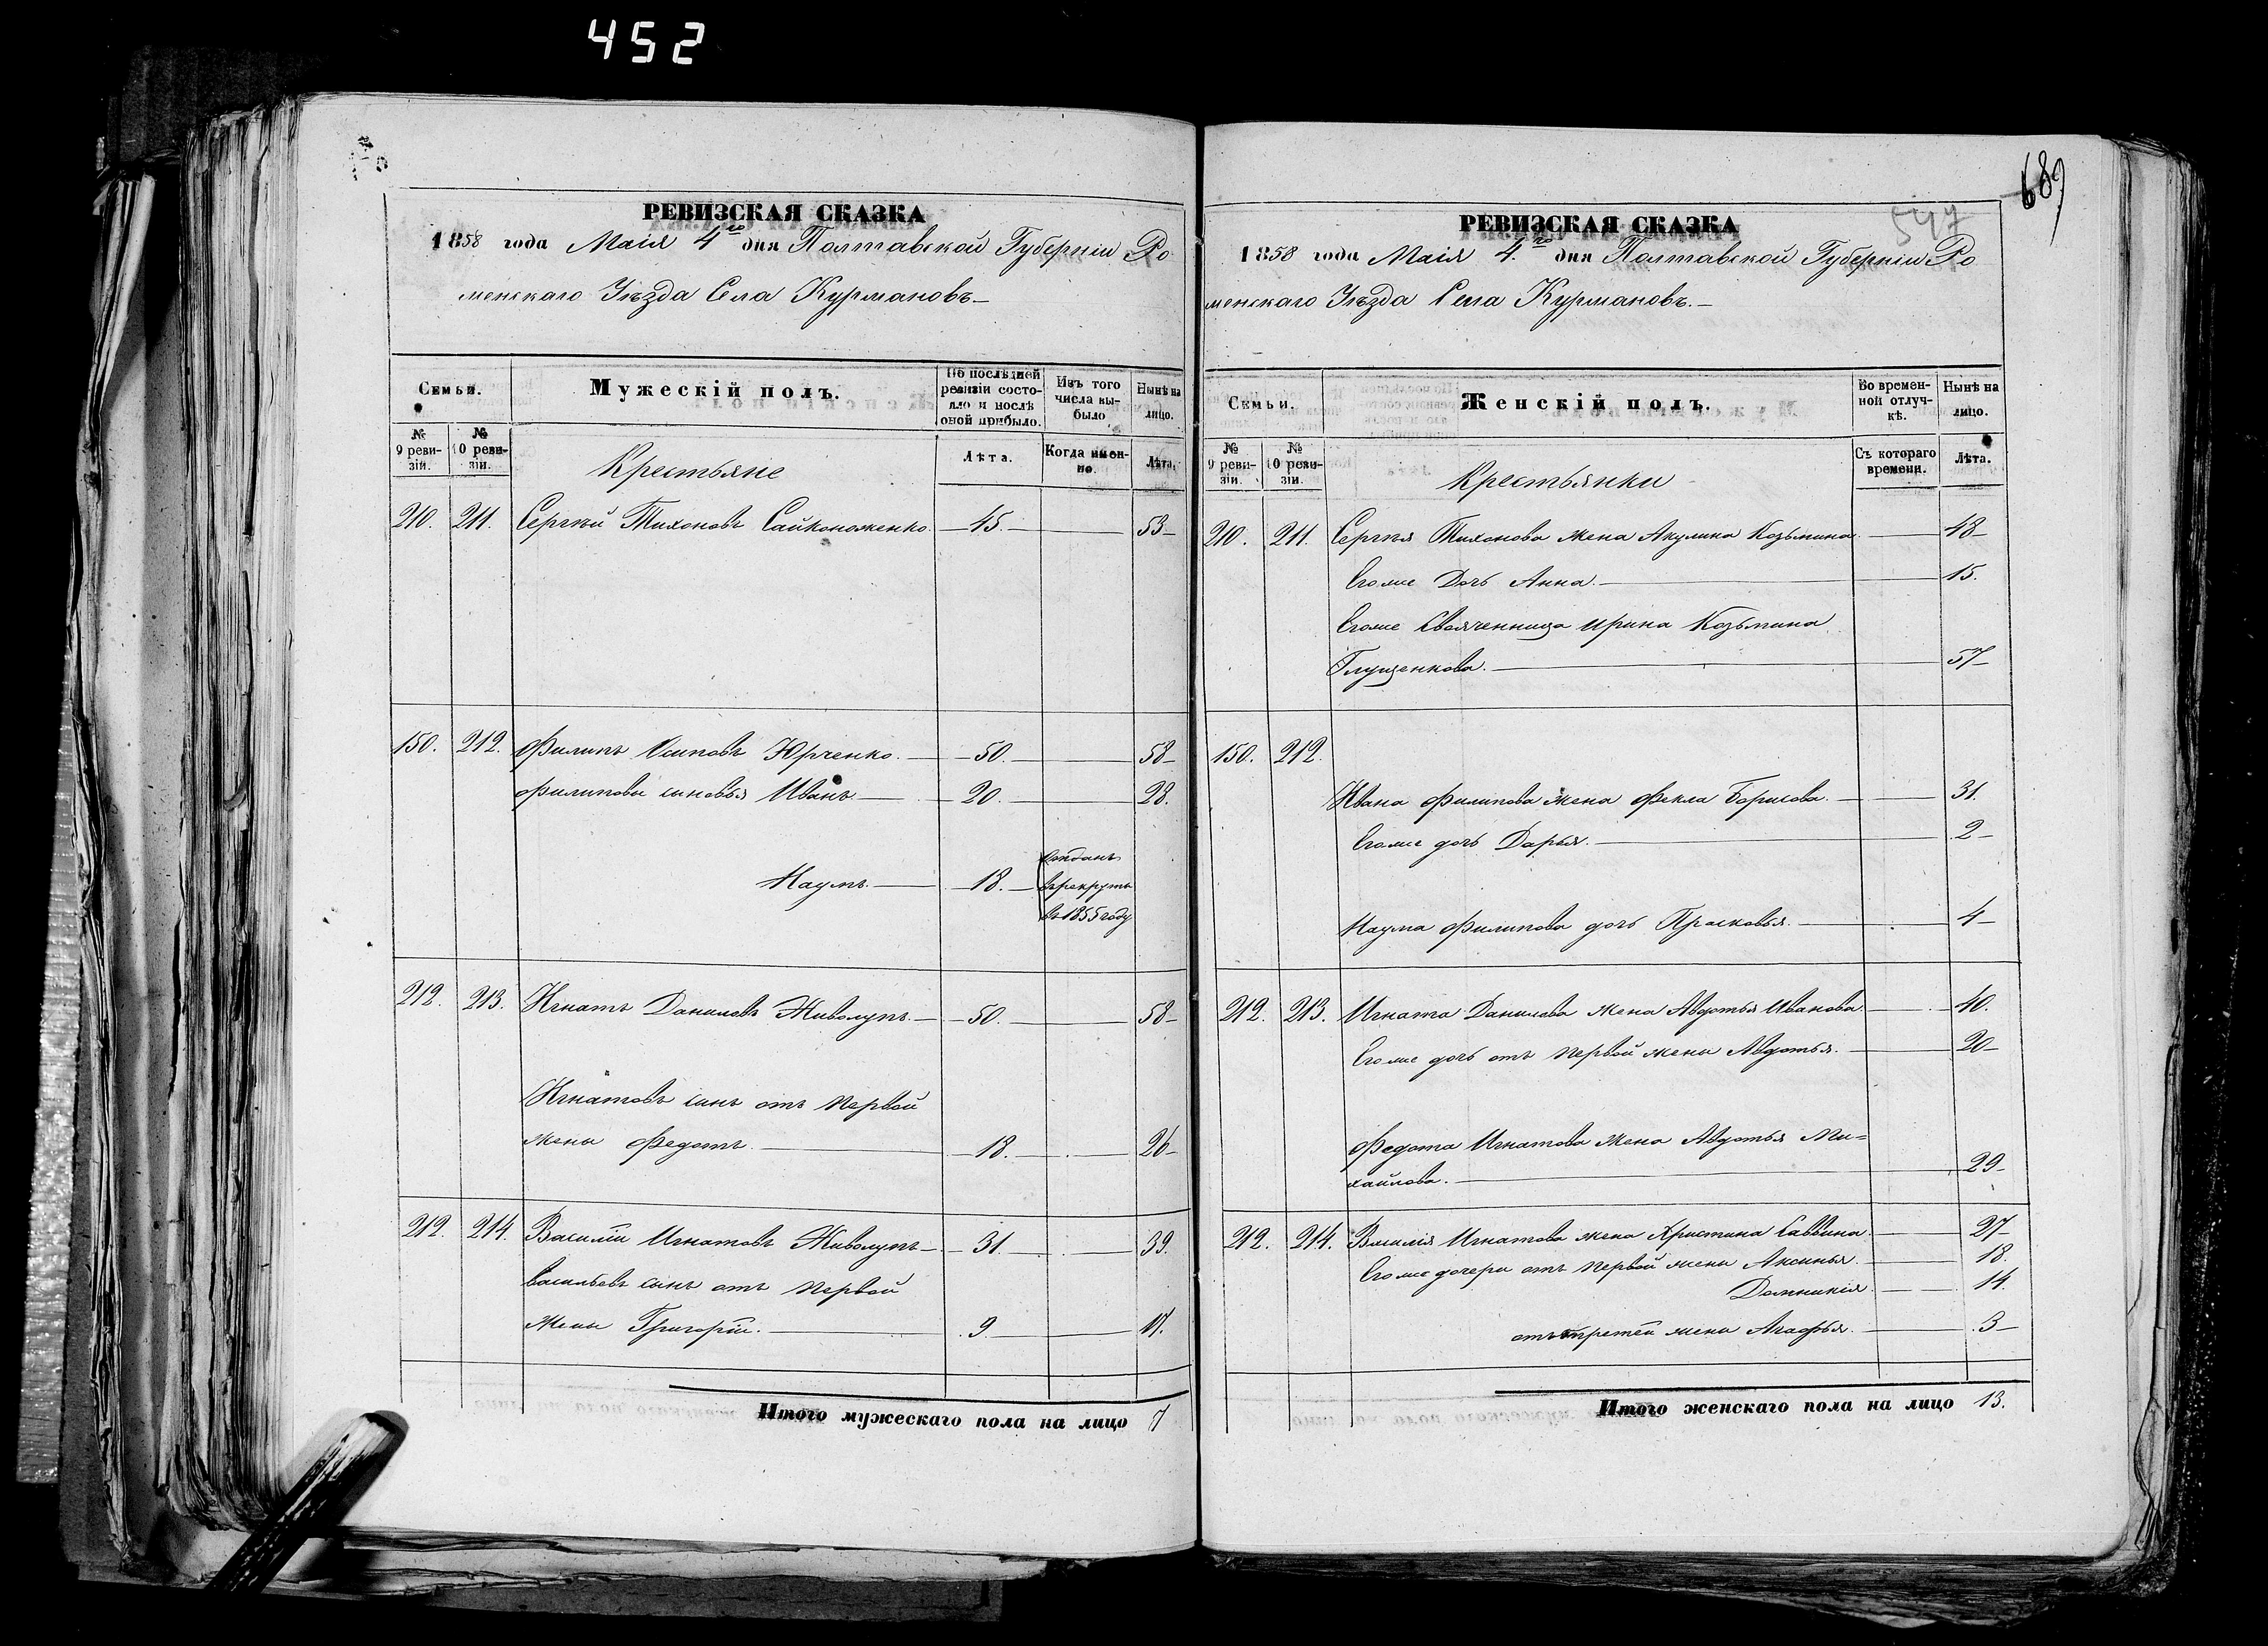 452
РЕВИЗСКАЯ СКАЗКА
1858 года Маія 4го дня Полтавской Губерніи Ро
менскаго Уѣзда Села Курмановъ.
Семьи.
Мужескій полъ.
По послѣдней ревизіи состояло и послѣ оной прибыло.
Изъ того числа выбыло
Нынѣ на лицо.
№ 9 ревизіи.
№ 10 ревизіи.
Крестьяне
Лѣта.
Когда именно.
Лѣта.
210. 211. Сергѣй Тихоновъ Сайконоженко. 45. 53
150. 212. Филипъ Осиповъ Юрченко. 50. 58
Филиповы сыновья Иванъ 20. 28.
Наумъ. 18.
Отданъ
въ рекруты
въ 1855 году
212. 213. Игнатъ Даниловъ Живолупъ. 50. 58
Игнатовъ сынъ отъ первой
жены Федотъ. 18. 26
212. 214. Василій Игнатовъ Живолупъ 31. 39.
Васильевъ сынъ отъ первой
жены Григорій. 9 17.
Итого мужескаго пола на лицо 7
689
547
РЕВИЗСКАЯ СКАЗКА
1858 года Маія 4.го дня Полтавской Губерніи Ро
менскаго Уѣзда Села Курмановъ.
Семьи.
Женскій полъ.
Во временной отлучкѣ.
Нынѣ на лицо.
№ 9 ревизіи.
№ 10 ревизіи.
Крестьянки
Съ котораго времени.
Лѣта.
210. 211. Сергѣя Тихонова жена Акулина Козьмина. 48
Егоже Дочь Анна. 15.
Егоже Своячeнница Ирина Козьмина
Глущенкова. 57
150. 212.
Ивана Филипова жена Фекла Борисова. 31.
Егоже дочь Дарья. 2
Наума Филипова дочь Прасковья. 4
212. 213. Игната Данилова жена Авдотья Иванова 40.
Егоже дочь отъ первой жены Авдотья. 20
Федота Игнатова жена Авдотья Ми=
хайлова. 29
212. 214. Василія Игнатова жена Христина Саввина 27
Егоже дочери отъ первой жены Аксинья. 18.
Домникія 14.
отъ третей жены Агафья. 3
Итого женскаго пола на лицо 13.